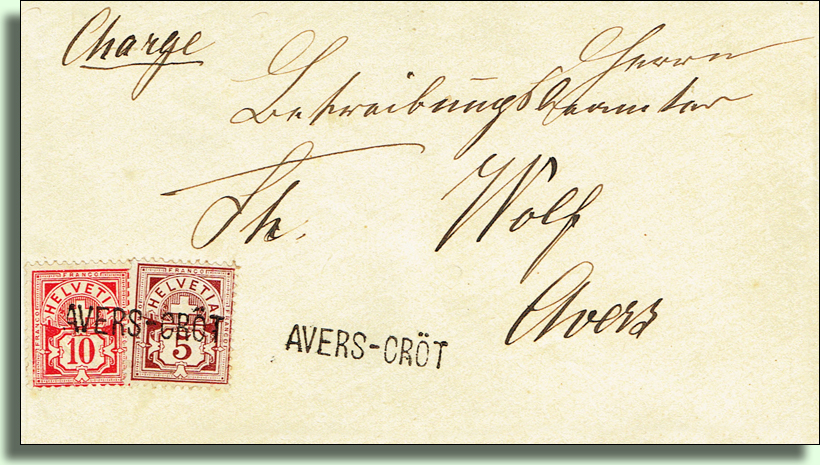 Charge
Herrn
Betreibungsbeamter
Th. Wolf
Avers
FRANCO HELVETIA FRANCO FRANCO 10
FRANCO HELVETIA FRANCO FRANCO 5
AVERS-CRÖT
AVERS-CRÖT